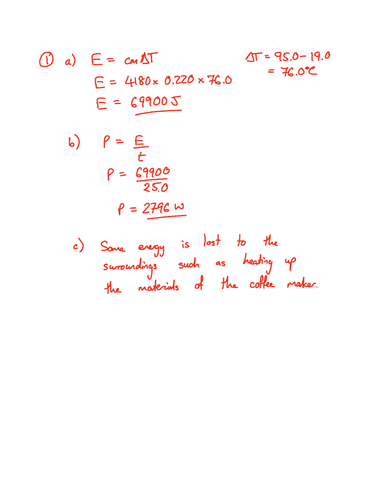 ① a) E = cmΔT ΔT = 95.0 - 19.0
E = 4180 × 0.220 × 76.0 = 76.0°C
E = 69900 J
b) P = E/t
P = 69900/25.0
P = 2796 W
c) Some energy is lost to the
surroundings such as heating up
the materials of the coffee maker.